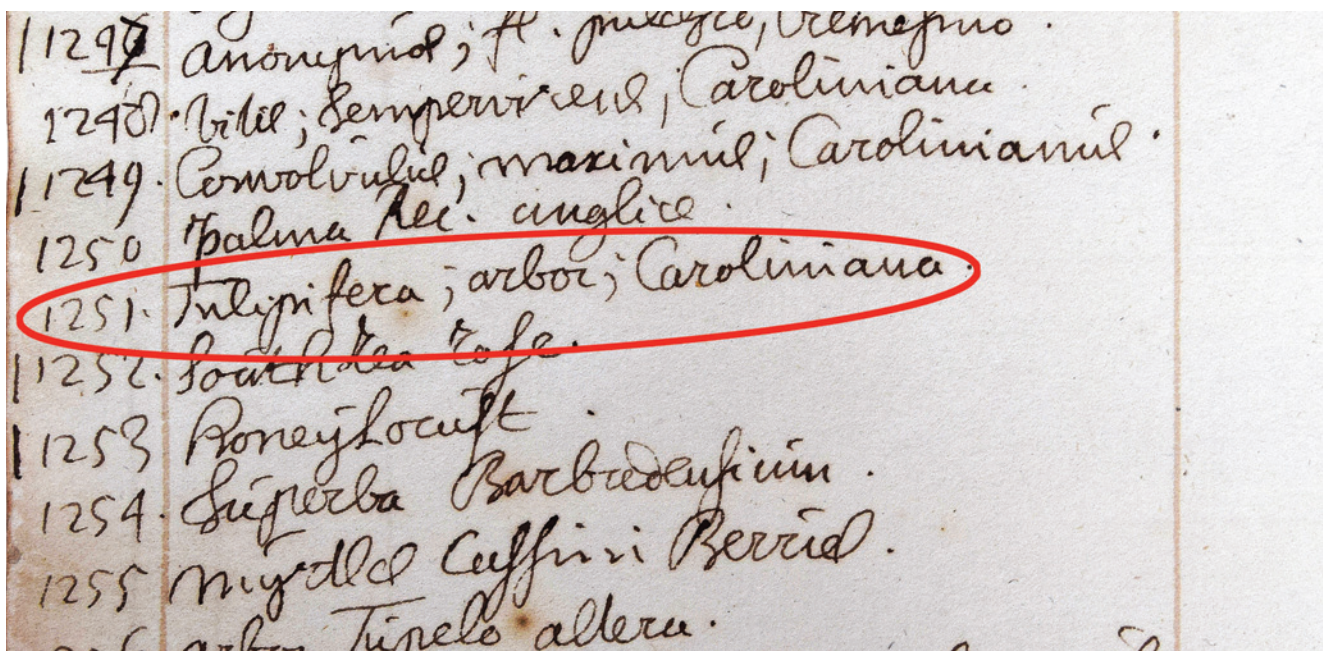 1247 anonymus; fl.
1248. Vitis; Sempervirens; Caroliniana.
1249. Convolvulus; maximus; Carolinianus.
1250 Palma Rec. anglice.
1251. Tulipifera; arbor; Caroliniana.
1252. South Sea rose.
1253 Honey Locust.
1254. Superba Barbadensium.
1255 Myrtle Cassini Berries.
arbor Tupelo altera.